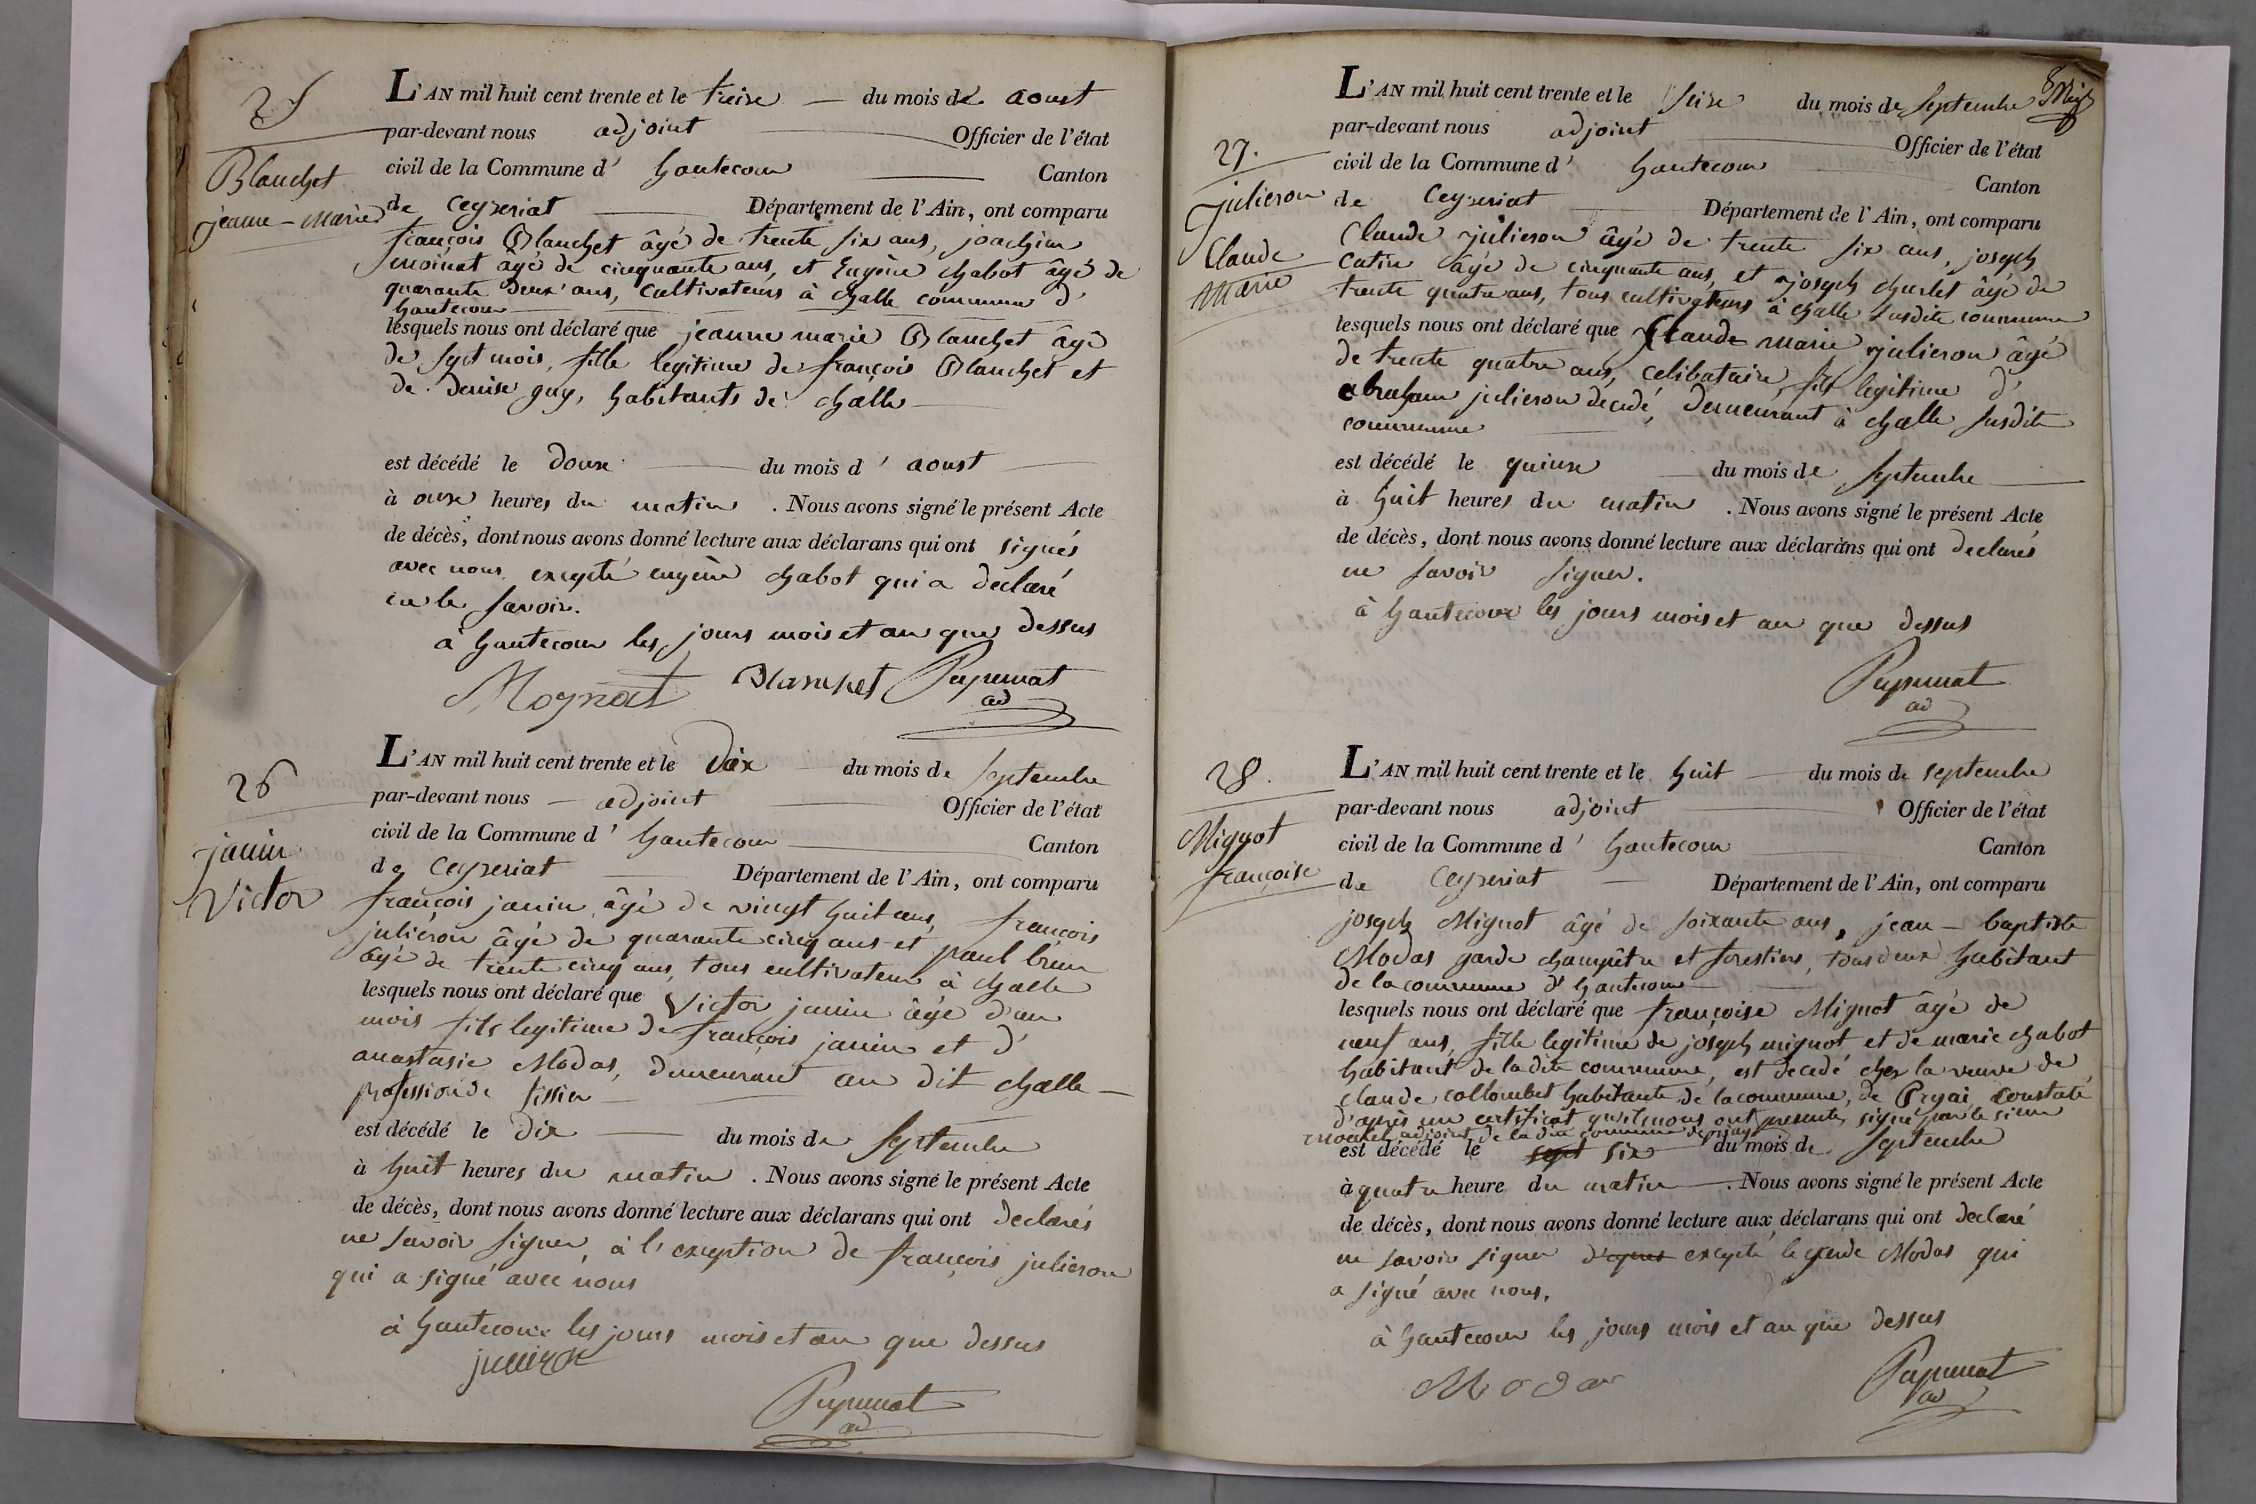 25
Blanchet
jeanne-Marie
L'AN mil huit cent trente et le treize du mois de aoust
par-devant nous adjoint Officier de l'état
civil de la Commune d' hautecour Canton
de Ceyzeriat Département de l'Ain, ont comparu
françois Blanchet âgé de trente six ans, joachim
moinat âgé de cinquante ans, et Eugène chabot âgé de
quarante deux ans, cultivateurs à challe commune d'
hautecour
lesquels nous ont déclaré que jeanne marie Blanchet âgé
de sept mois, fille legitime de françois Blanchet et
de denise guy, habitants de challe
est décédé le douze du mois d' aoust
à onze heures du matin . Nous avons signé le présent Acte
de décès, dont nous avons donné lecture aux déclarans qui ont signés
avec nous excepté eugène chabot qui a declaré
ne le savoir.
à hautecour les jours mois et an que dessus
Moynat Blanchet Papunat
ad
26
janin
Victor
L'AN mil huit cent trente et le Dix du mois de septembre
par-devant nous adjoint Officier de l'état
civil de la Commune d' hautecour Canton
de Ceyzeriat Département de l'Ain, ont comparu
françois janin âgé de vingt huit ans, françois
juliéron âgé de quarante cinq ans et paul brun
âgé de trente cinq ans, tous cultivateur à challe
lesquels nous ont déclaré que Victor janin âgé d'un
mois fils legitime de françois janin et d'
anastasie Modas, demeurant au dit challe
profession de tissier
est décédé le dix du mois de septembre
à huit heures du matin . Nous avons signé le présent Acte
de décès, dont nous avons donné lecture aux déclarans qui ont declarés
ne savoir signer, à l'exception de françois julieron
qui a signé avec nous
à hautecour les jours mois et an que dessus
Papunat
ad
27.
julieron
Claude
Marie
L'AN mil huit cent trente et le seize du mois de septembre
par-devant nous adjoint Officier de l'état
civil de la Commune d' hautecour Canton
de Ceyzeriat Département de l'Ain, ont comparu
Claude julieron âgé de trente six ans, joseph
catin âgé de cinquante ans, et joseph churlet âgé de
trente quatre ans, tous cultivateurs à challe susdite commune
lesquels nous ont déclaré que Claude marie julieron âgé
de trente quatre ans, celibataire, fils legitime d'
abraham julieron decedé, demeurant à challe susdite
commune
est décédé le quinze du mois de septembre
à huit heures du matin . Nous avons signé le présent Acte
de décès, dont nous avons donné lecture aux déclarans qui ont declarés
ne savoir signer.
à hautecour les jours mois et an que dessus
Papunat
ad
28.
Mignot
françoise
L'AN mil huit cent trente et le huit du mois de septembre
par-devant nous adjoint Officier de l'état
civil de la Commune d' hautecour Canton
de Ceyzeriat Département de l'Ain, ont comparu
joseph Mignot âgé de soixante ans, jean-baptiste
Modas garde champêtre et forestiers, tous deux habitant
de la commune d'hautecour
lesquels nous ont déclaré que françoise Mignot âgé de
neuf ans, fille legitime de joseph mignot et de marie chabot
habitant de la dite commune, est decedé chez la veuve de
claude collombet habitante de la commune de Priai constaté
d'après un certificat qu'ils nous ont presenté, signé par le sieur
adjoint de la dite commune de priay
est décédé le sept six du mois de septembre
à quatre heure du matin . Nous avons signé le présent Acte
de décès, dont nous avons donné lecture aux déclarans qui ont declaré
ne savoir signer excepté le garde Modas qui
a signé avec nous.
à hautecour les jours mois et an que dessus
Modas
Papunat
ad